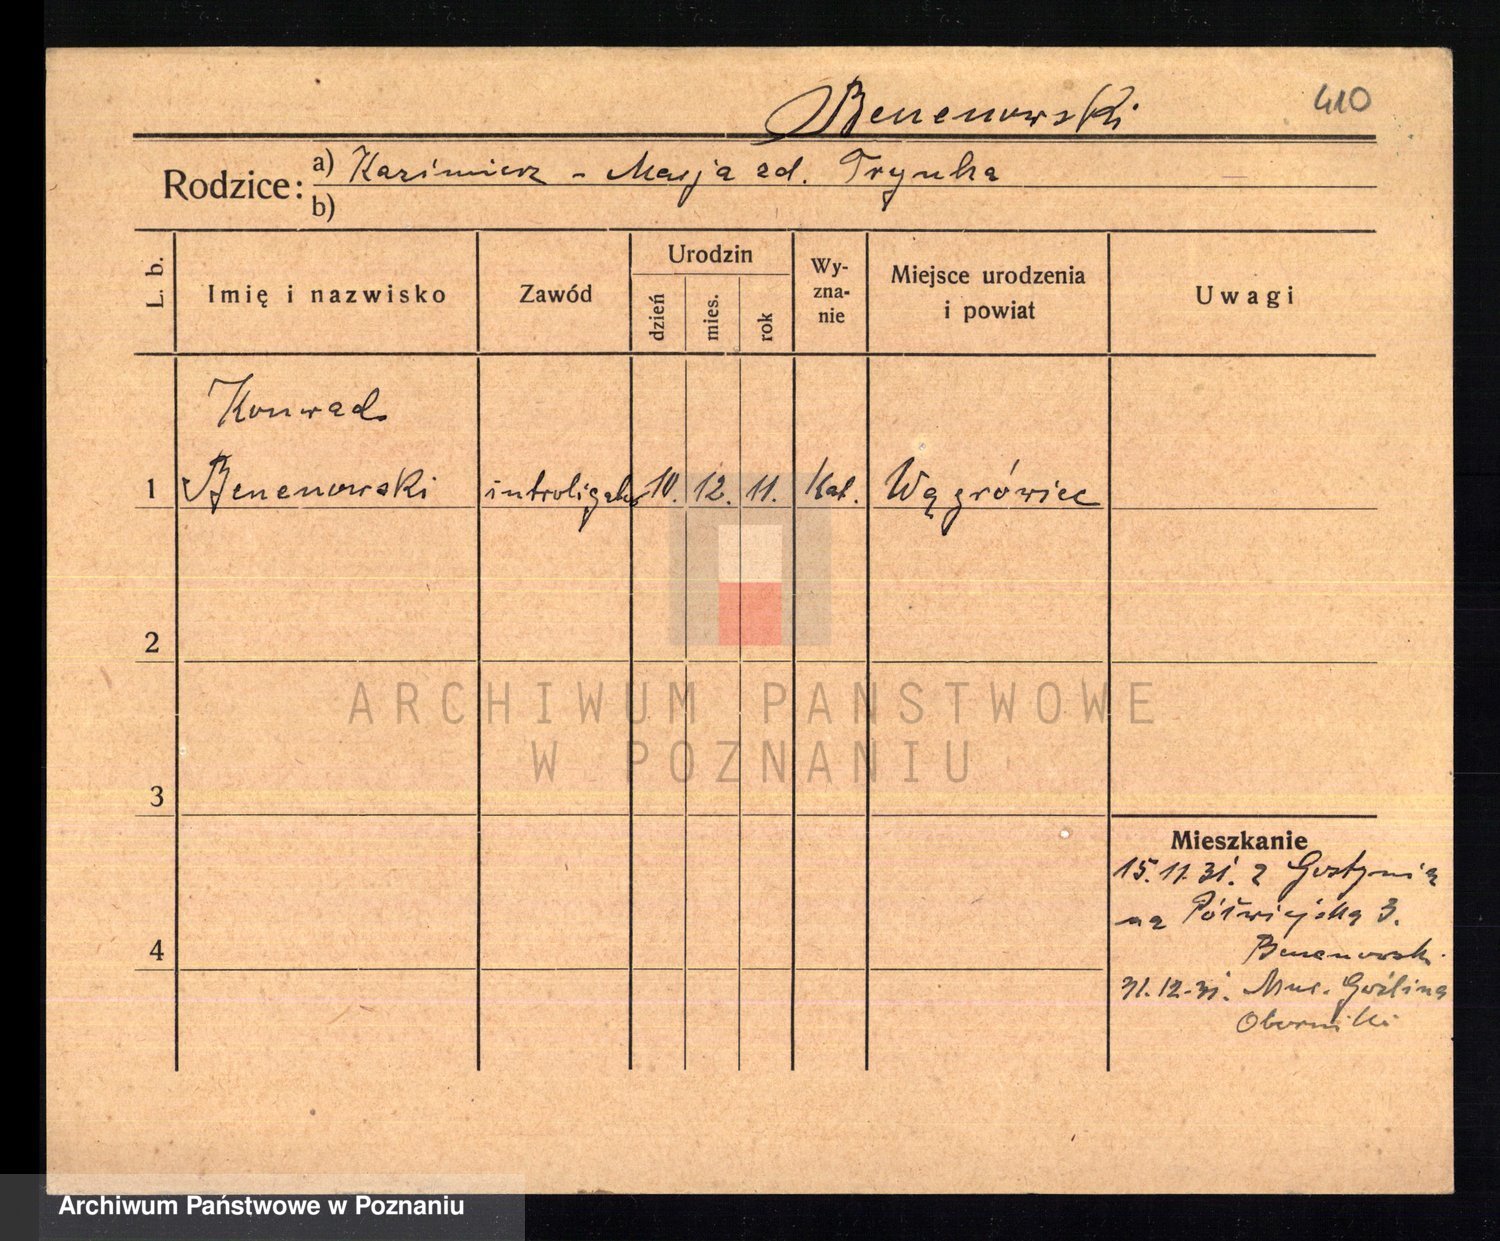 Benenowski
410
Rodzice:
a) Kazimierz - Marja zd. Trynka
b)
L. b.
Imię i nazwisko
Zawód
Urodzin
dzień
mies.
rok
Wy-
zna-
nie
Miejsce urodzenia
i powiat
Uwagi
Konrad
1 Benenowski introligator 10. 12. 11. Kat. Wągrówiec
2
3
4
Mieszkanie
15.11.31. z Gostynia
na Półwiejska 3.
Benenowski
31.12.31. Mur. Goślina
Oborniki
ARCHIWUM PAŃSTWOWE
W POZNANIU
Archiwum Państwowe w Poznaniu